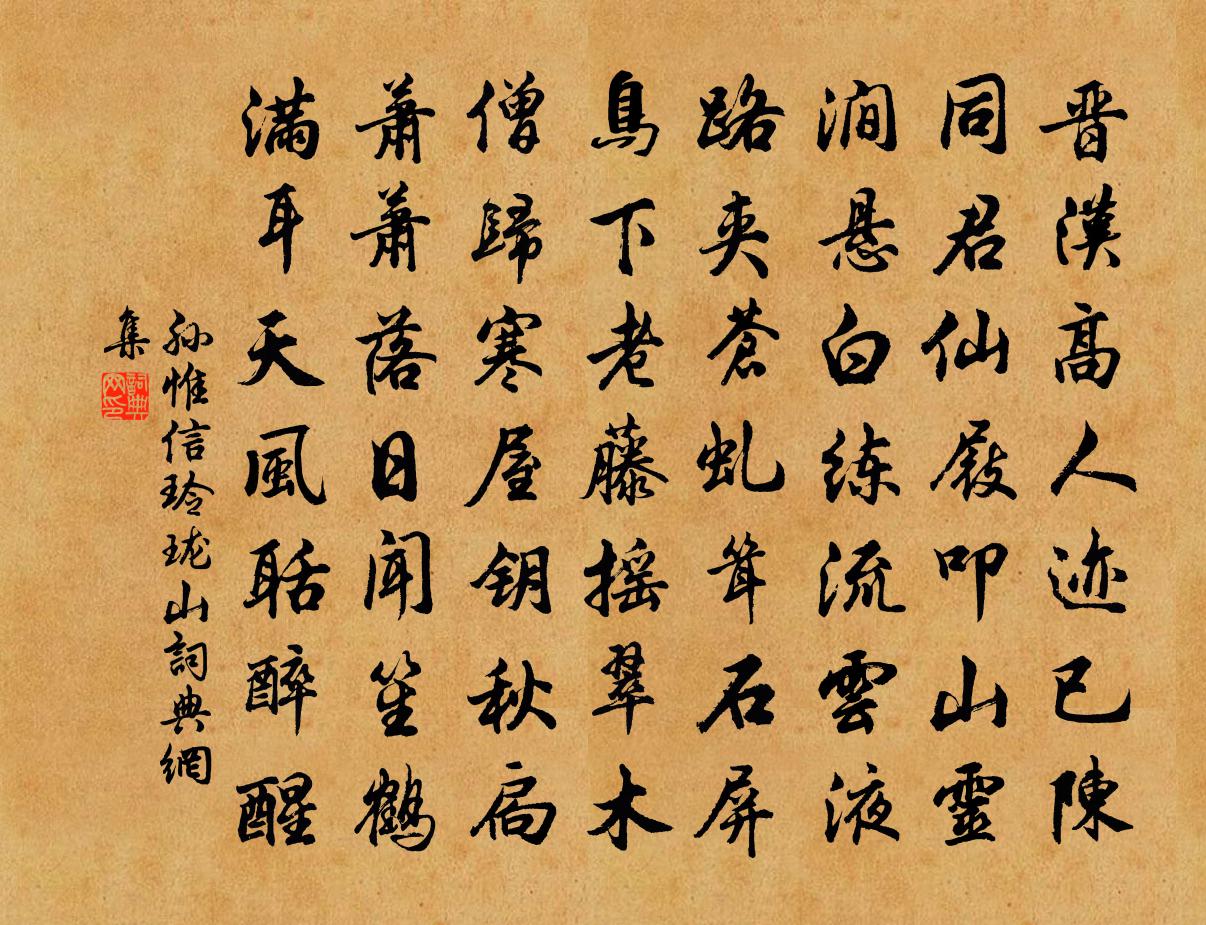 晋漢高人迹已陳
同君仙屐叩山靈
澗悬白练流雲液
路夹蒼虬耸石屏
鳥下老藤摇翠木
僧歸寒屋钥秋扃
萧萧落日闻笙鹤
满耳天風聒醉醒
孙惟信玲珑山詞典網
集
詞典網印